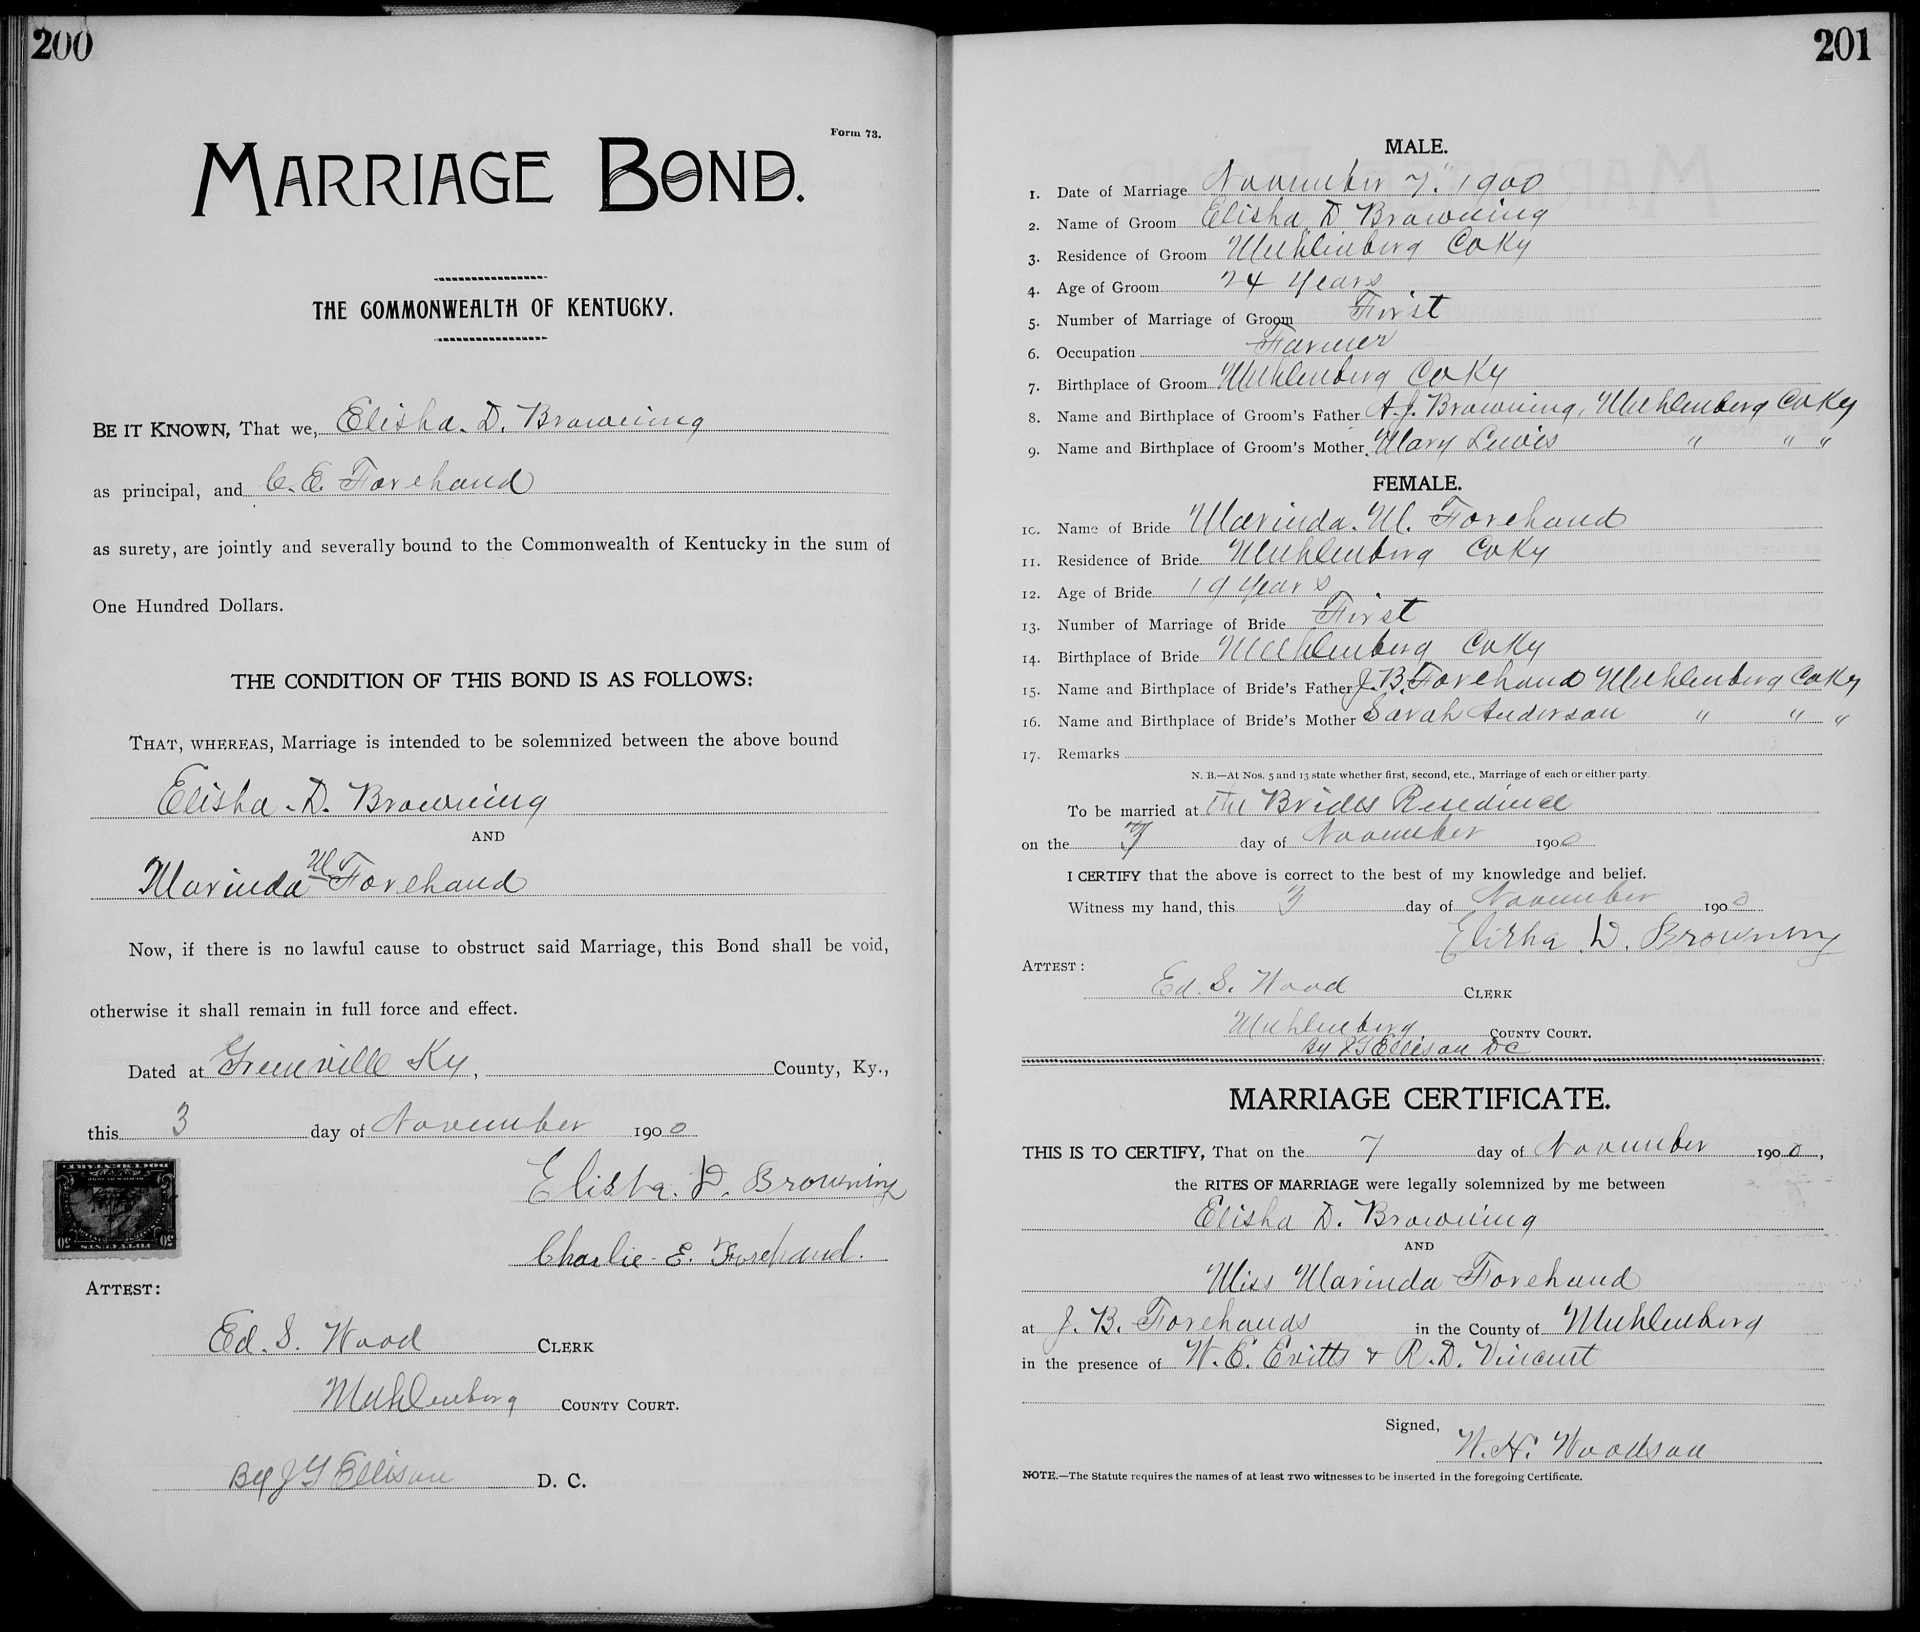 200
Form 73.
MARRIAGE BOND.
THE COMMONWEALTH OF KENTUCKY.
BE IT KNOWN, That we, Elisha. D. Browning
as principal, and C. E. Forehand
as surety, are jointly and severally bound to the Commonwealth of Kentucky in the sum of
One Hundred Dollars.
THE CONDITION OF THIS BOND IS AS FOLLOWS:
THAT, WHEREAS, Marriage is intended to be solemnized between the above bound
Elisha. D. Browning
AND
Marinda M Forehand
Now, if there is no lawful cause to obstruct said Marriage, this Bond shall be void,
otherwise it shall remain in full force and effect.
Dated at Greenville Ky, County, Ky.,
this 3 day of November 1900
Elisha. D. Browning
Charlie E. Forehand.
ATTEST:
Ed. S. Wood CLERK
Muhlenberg COUNTY COURT.
By J G Ellison D. C.
201
MALE.
1. Date of Marriage November 7." 1900
2. Name of Groom Elisha D Browning
3. Residence of Groom Muhlenberg Co Ky
4. Age of Groom 24 Years
5. Number of Marriage of Groom First
6. Occupation Farmer
7. Birthplace of Groom Muhlenberg Co Ky
8. Name and Birthplace of Groom's Father A. J. Browning, Muhlenberg Co Ky
9. Name and Birthplace of Groom's Mother Mary Lewis " " "
FEMALE.
10. Name of Bride Marinda. M. Forehand
11. Residence of Bride Muhlenberg Co Ky
12. Age of Bride 19 Years
13. Number of Marriage of Bride First
14. Birthplace of Bride Muhlenberg Co Ky
15. Name and Birthplace of Bride's Father J. B. Forehand Muhlenberg Co Ky
16. Name and Birthplace of Bride's Mother Sarah Anderson " " "
17. Remarks
N. B.—At Nos. 5 and 13 state whether first, second, etc., Marriage of each or either party.
To be married at the Brides Residence
on the 7 day of November 1900
I CERTIFY that the above is correct to the best of my knowledge and belief.
Witness my hand, this 3 day of November 1900
Elisha D. Browning
ATTEST:
Ed. S. Wood CLERK
Muhlenberg COUNTY COURT.
By J G Ellison DC
MARRIAGE CERTIFICATE.
THIS IS TO CERTIFY, That on the 7 day of November 1900,
the RITES OF MARRIAGE were legally solemnized by me between
Elisha D. Browning
AND
Miss Marinda Forehand
at J. B. Forehands in the County of Muhlenberg
in the presence of W. E. Evitts & R. D. Vincent
Signed,
W. H. Woodson
NOTE.—The Statute requires the names of at least TWO witnesses to be inserted in the foregoing Certificate.